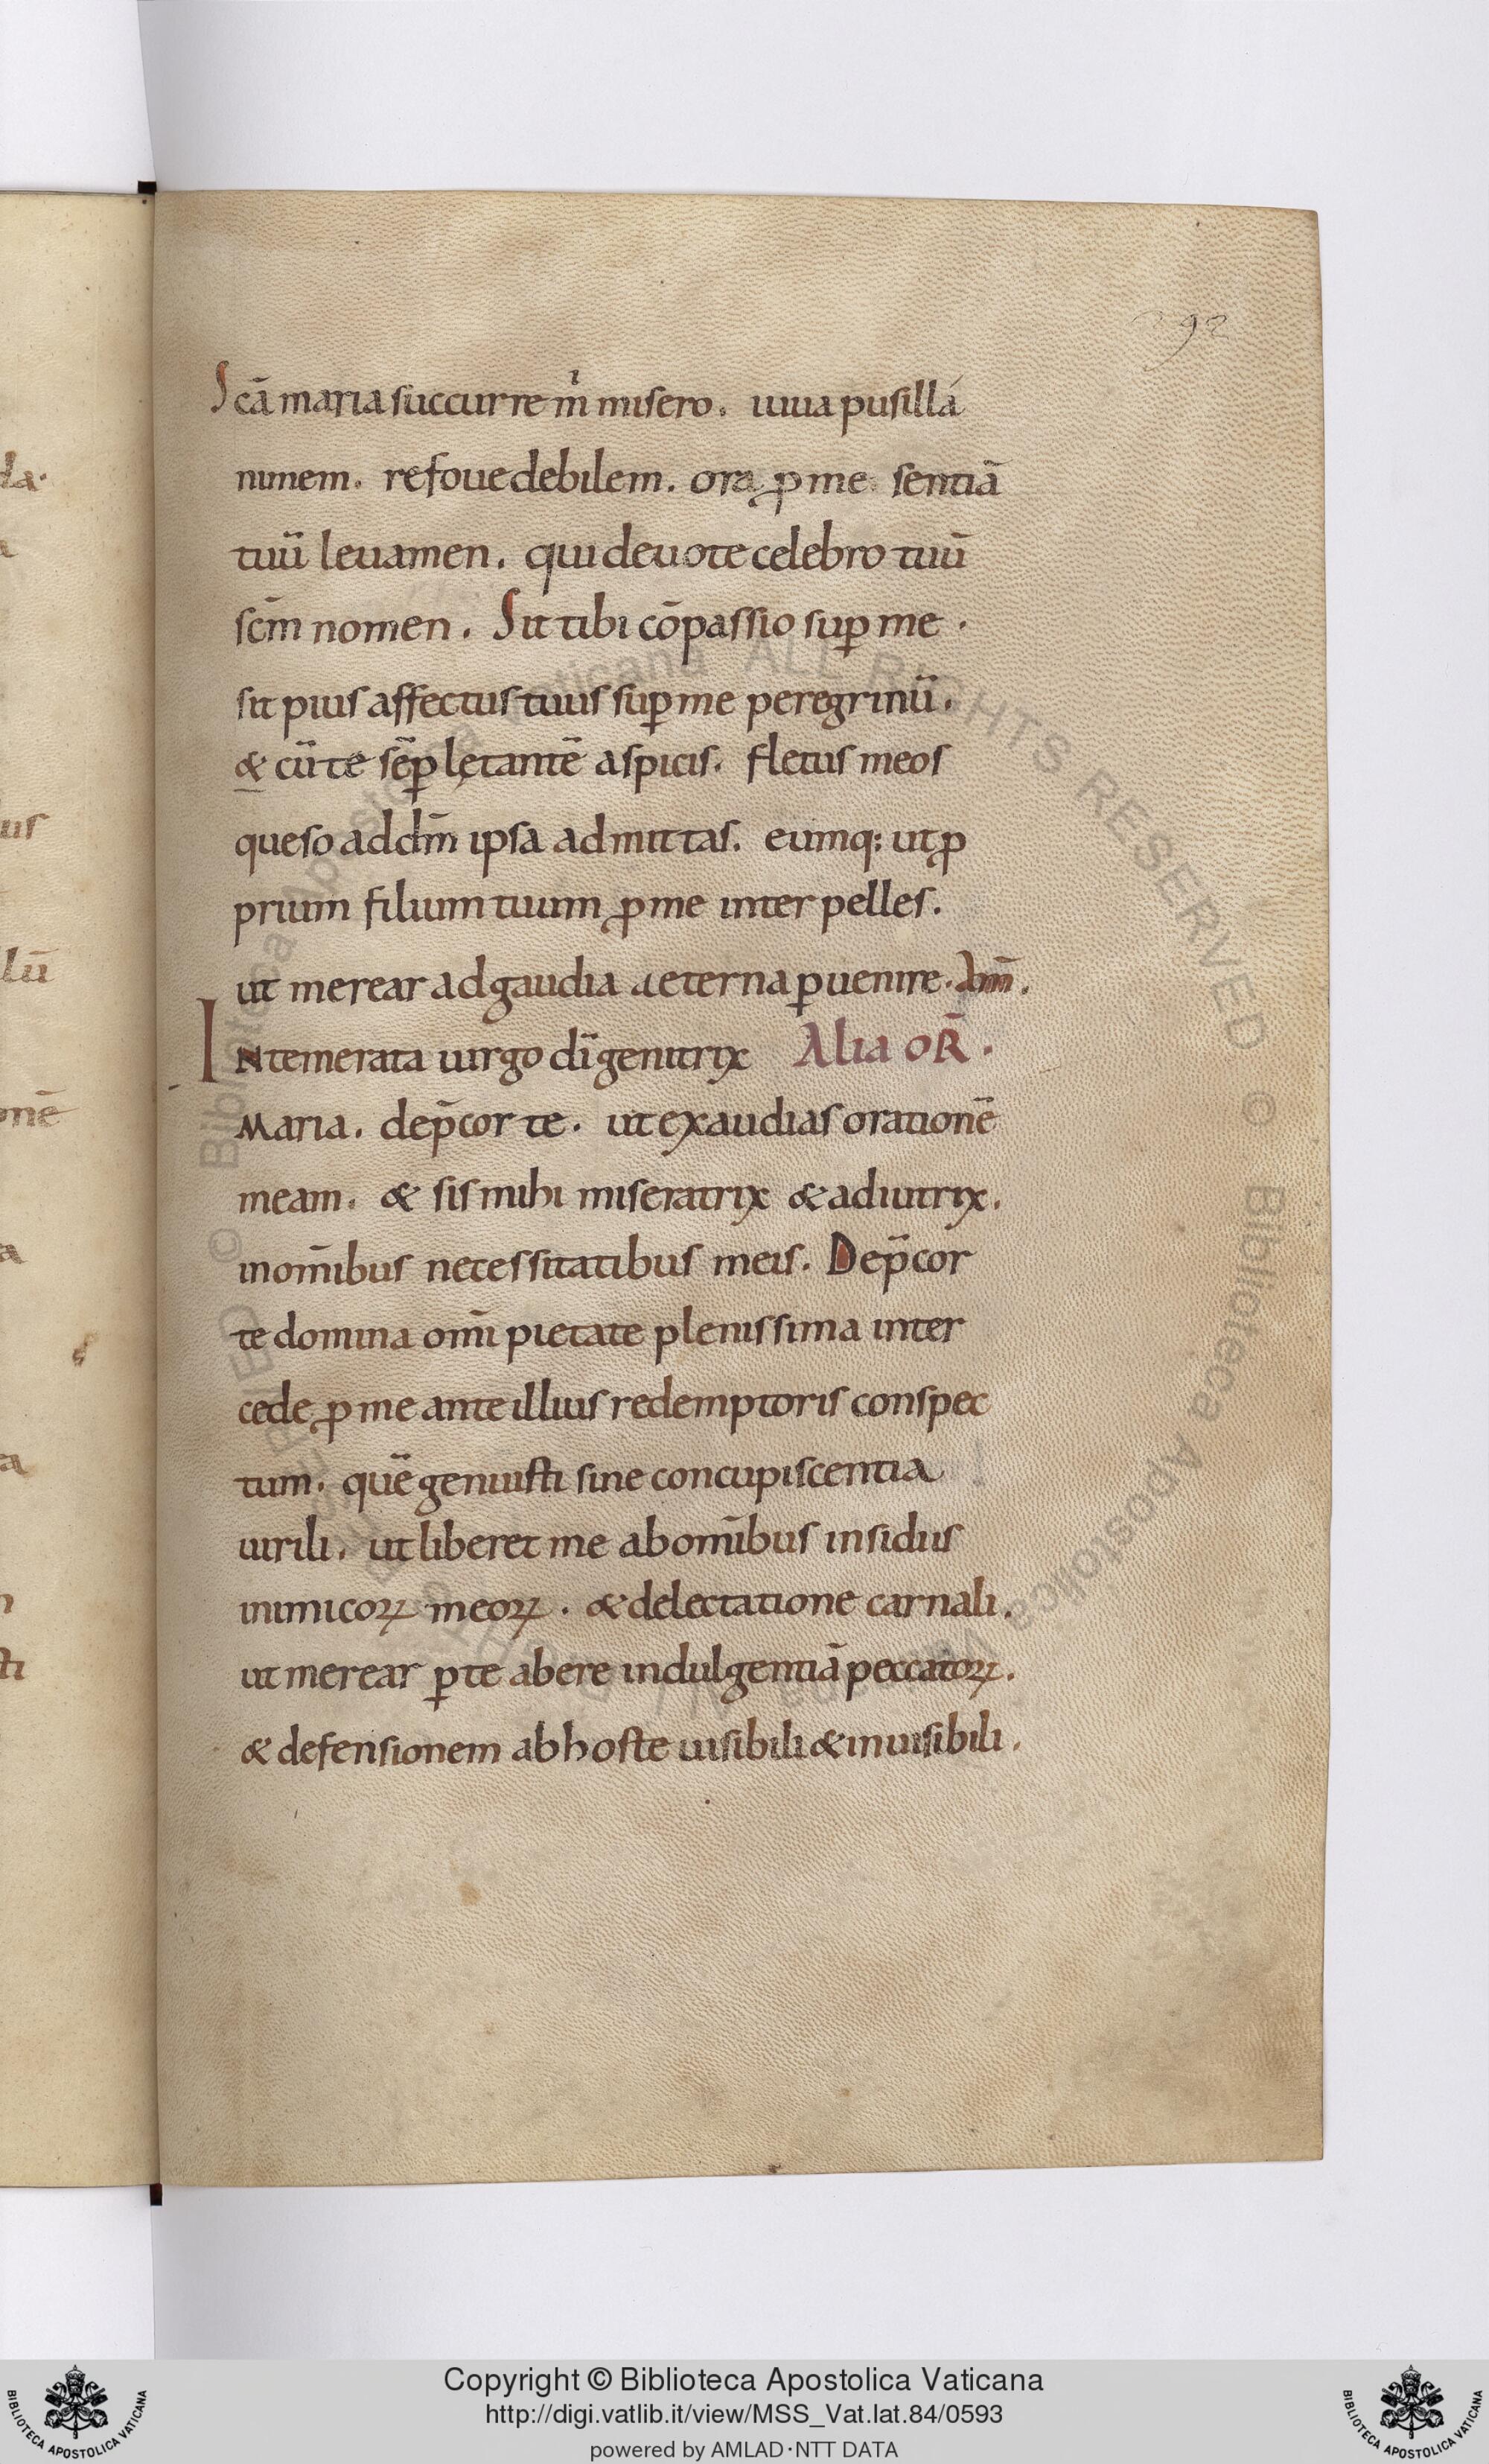 292
Scā maria succurre m̍ misero. iuua pusilla
nimem. refoue debilem. ora ꝓ me sentiā
tuū leuamen. qui deuote celebro tuū
scm̄ nomen. Sit tibi cōpassio suꝑ me.
sit pius affectus tuus suꝑ me peregrinū.
& cū te sēꝑ lętantē aspicis. fletus meos
queso ad dm̄ ipsa admittas. eumq: ut ꝓ
prium filium tuum ꝓ me interpelles.
ut merear ad gaudia aeterna ꝑuenire. Am̄.
INtemerata uirgo dī genitrix Alia oR̄.
Maria. dep̄cor te. ut exaudias orationē
meam. & sis mihi miseratrix & adiutrix.
in om̄ibus necessitatibus meis. Dep̄cor
te domina om̄i pietate plenissima inter
cede ꝓ me ante illius redemptoris conspec
tum. quē genuisti sine concupiscentia
uirili. ut liberet me ab om̄ibus insidiis
inimicoꝝ meoꝝ. & delectatione carnali.
ut merear ꝑ te abere indulgentiā peccatoꝝ.
& defensionem ab hoste uisibili & inuisibili.
la.
us
lū
onē
a
a
sti
© Biblioteca Apostolica Vaticana ALL RIGHTS RESERVED
© Biblioteca Apostolica Vaticana ALL RIGHTS RESERVED
Copyright © Biblioteca Apostolica Vaticana
http://digi.vatlib.it/view/MSS_Vat.lat.84/0593
powered by AMLAD·NTT DATA
BIBLIOTECA APOSTOLICA VATICANA
BIBLIOTECA APOSTOLICA VATICANA